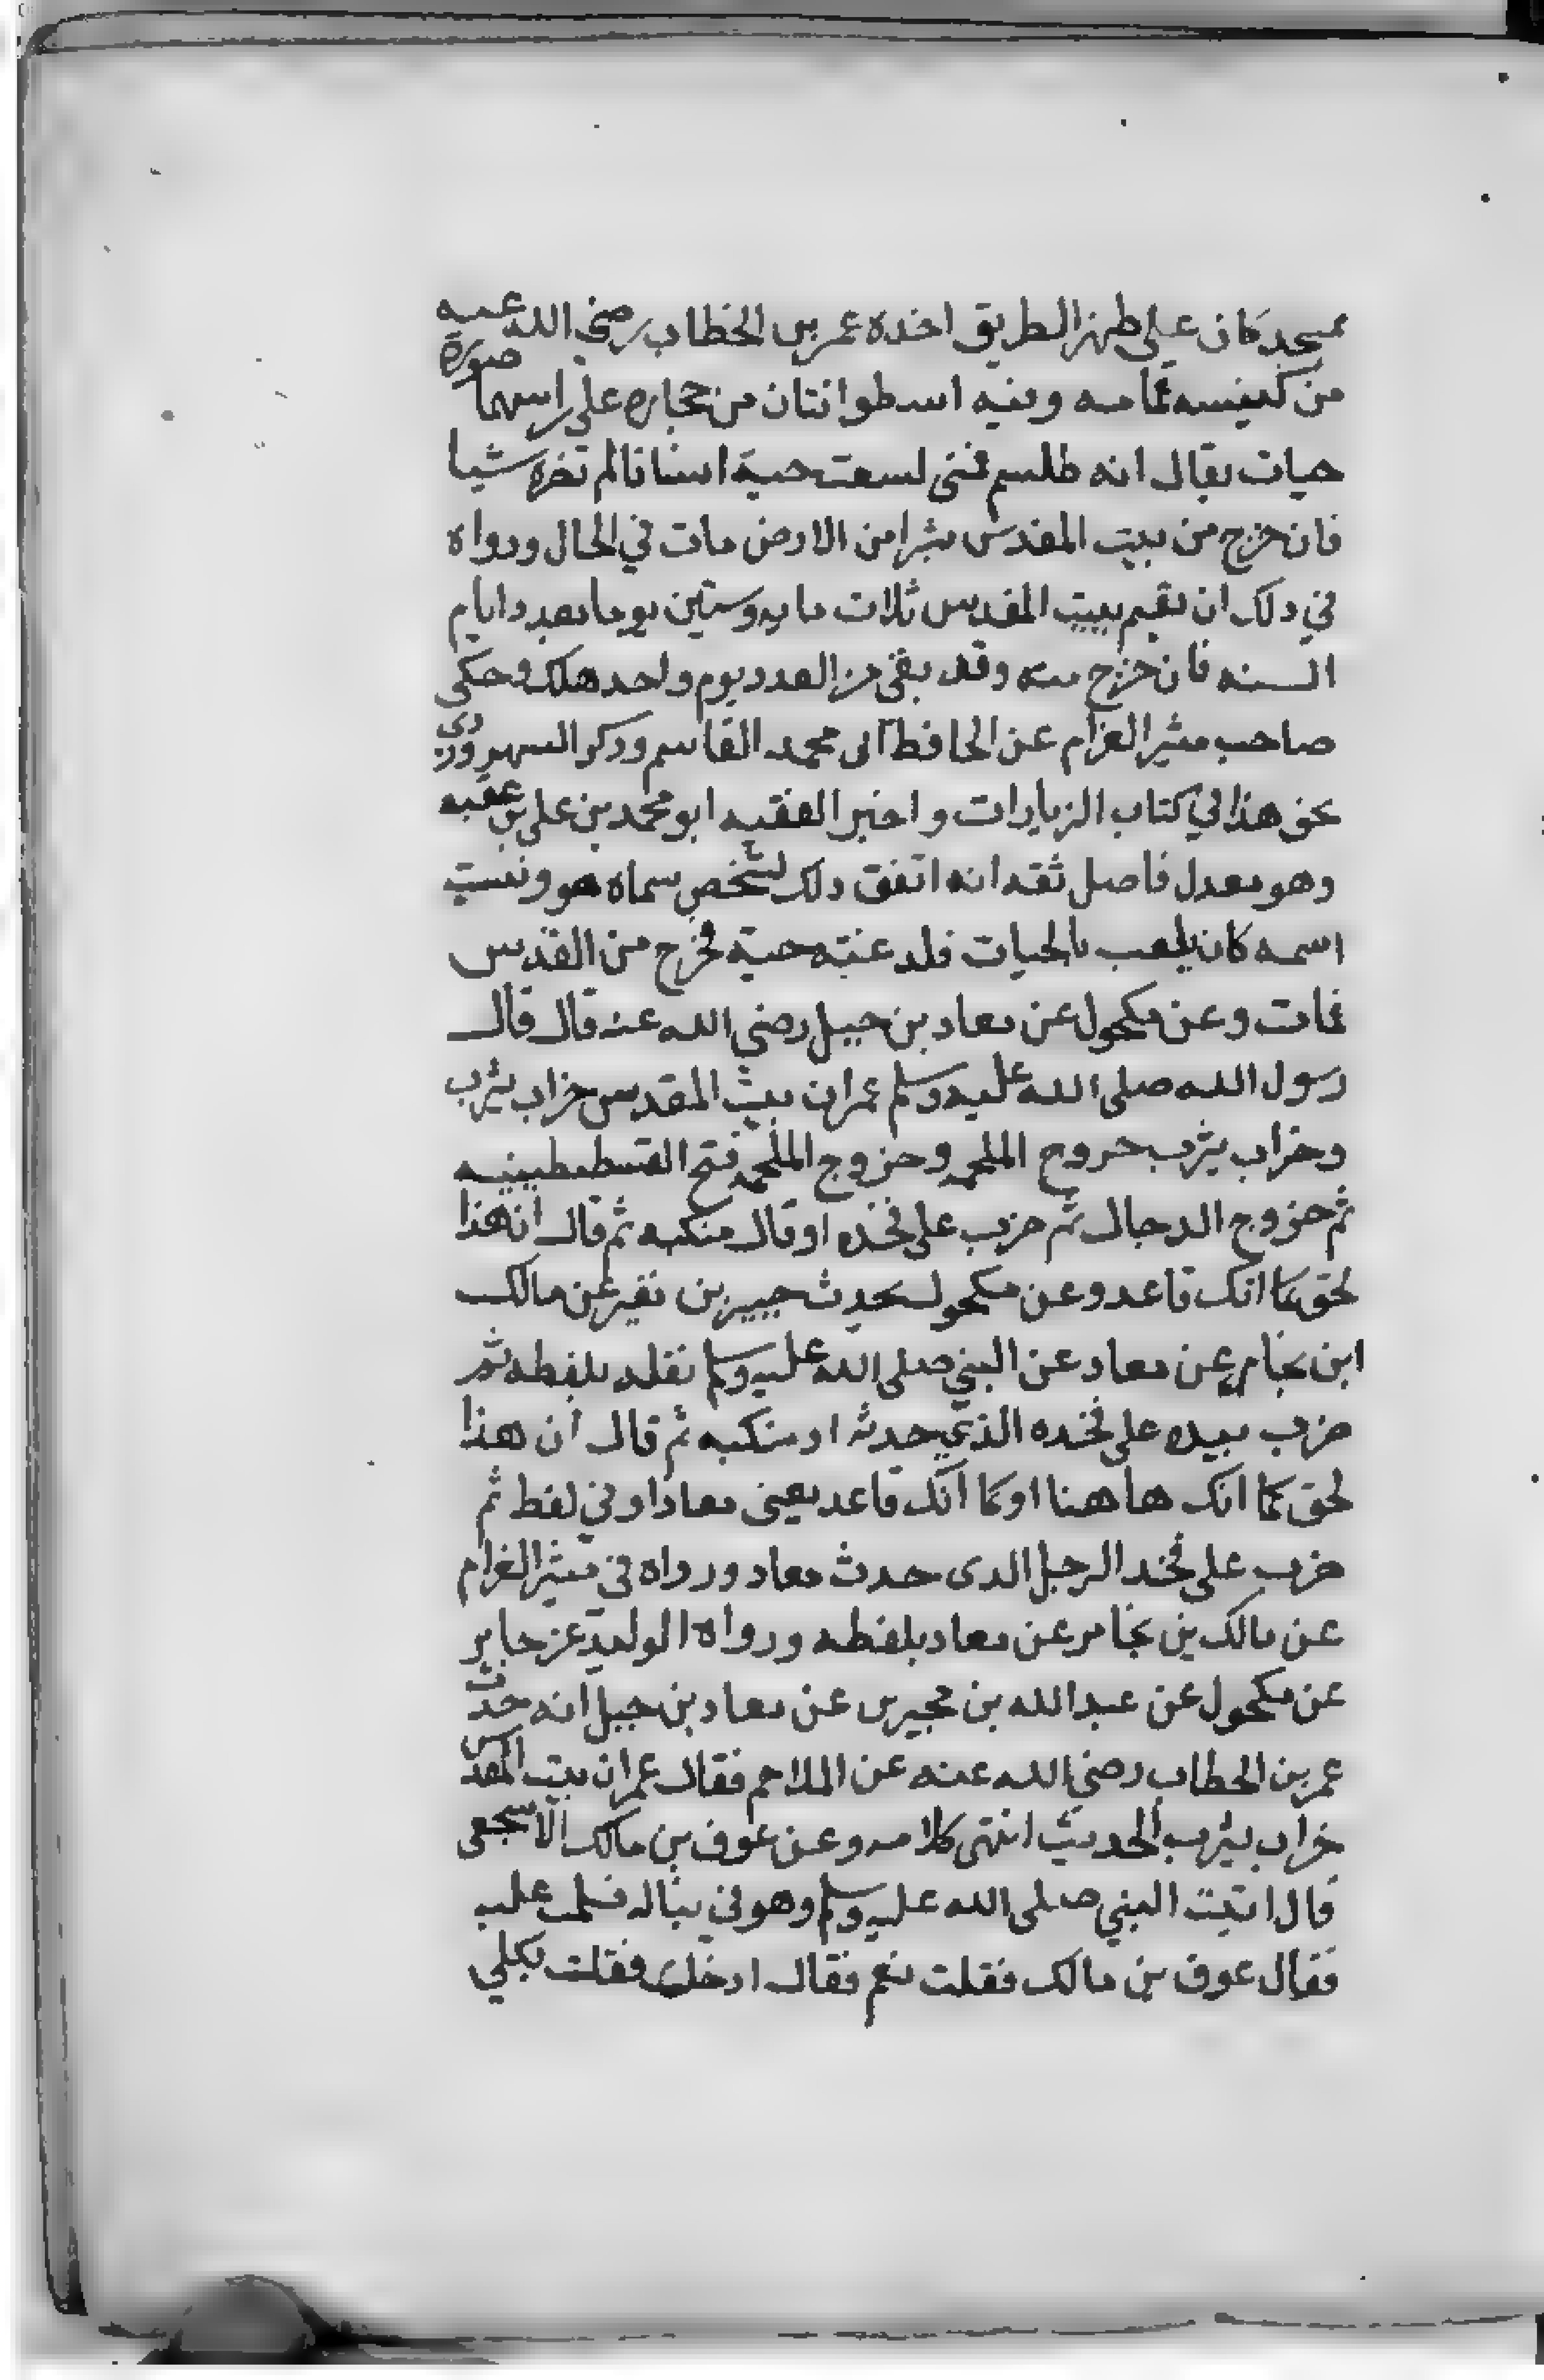 بمسجد كان على ظهر الطريق اخده عمر بن الخطاب رضي الله عنه
من كنيسه قمامه وفيه اسطوانتان من حجاره على راسهما صورة
حيات يقال انه طلسم فمتى لسعت حية اسنانا لم تضره شيا
فان خرج من بيت المقدس شبرا من الارض مات في الحال ودواه
في دلك ان يقيم ببيت المقدس ثلاث مايه وستين يوما بعدد ايام
السنه فان خرج منه وقد بقى من العدد يوم واحد هلك وحكى
صاحب مثير الغرام عن الحافظ ابى محمد القاسم ودكر السهروردى
نحو هذا في كتاب الزيارات واخبر الفقيه ابو محمد بن على بن عقبه
وهو معدل فاضل ثقه انه اتفق دلك لشخص سماه هو ونسيت
اسمه كان يلعب بالحيات فلدغته حية فخرج من القدس
فمات وعن مكحول عن معاد بن جبل رضي الله عنه قال قال
رسول الله صلى الله عليه وسلم عمران بيت المقدس خراب يثرب
وخراب يثرب خروج الملحمه وخروج الملحمه فتح القسطنطينيه
ثم خروج الدجال ثم ضرب على فخذه او قال منكبه ثم قال ان هذا
لحق كما انك قاعد وعن مكحول بحديث جبير بن نفير عن مالك
ابن يخامر عن معاد عن النبي صلى الله عليه وسلم نقله بلفظه ثم
ضرب بيده على فخده الذي حدثه او منكبه ثم قال ان هذا
لحق كما انك هاهنا او كما انك قاعد يعنى معادا وفي لفظ ثم
ضرب على فخد الرجل الدى حدث معاد ورواه في مثير الغرام
عن مالك بن يخامر عن معاد بلفظه ورواه الوليد عن جابر
عن مكحول عن عبد الله بن محيريز عن معاد بن جبل انه حدث
عمر بن الخطاب رضي الله عنه عن الملاحم فقال عمران بيت المقدس
خراب يثرب الحديث انتهى كلامه وعن عوف بن مالك الاشجعى
قال اتيت النبي صلى الله عليه وسلم وهو في بناله فسلمت عليه
فقال عوف بن مالك فقلت نعم فقال ادخل فقلت بكلي